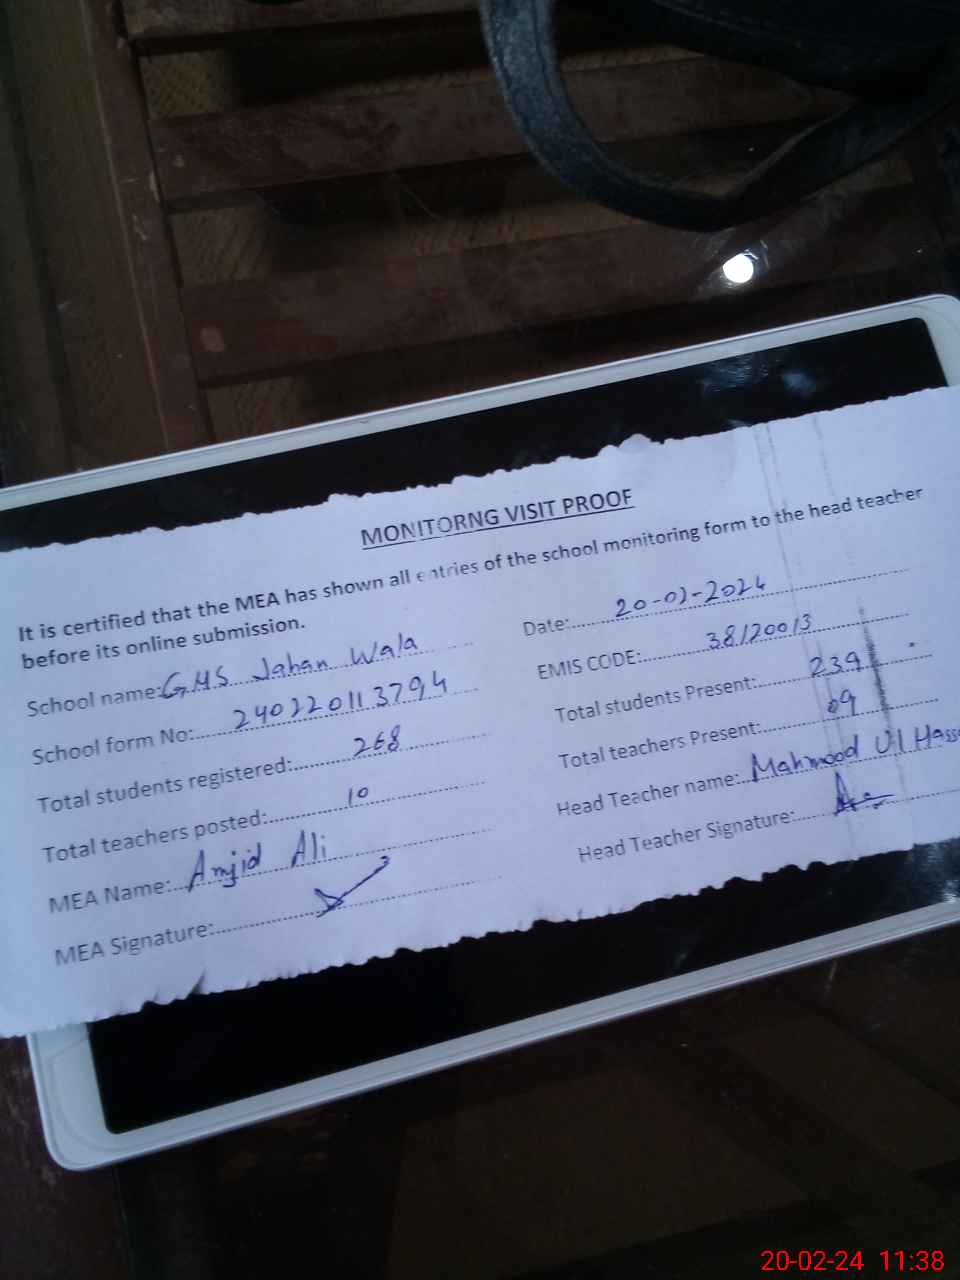 MONITORNG VISIT PROOF
It is certified that the MEA has shown all entries of the school monitoring form to the head teacher
before its online submission.
School name: GMS Jahan Wala
Date: 20-02-2024
School form No: 24022011 3794
EMIS CODE: 38120013
Total students registered: 268
Total students Present: 239
Total teachers posted: 10
Total teachers Present: 09
MEA Name: Amjid Ali
Head Teacher name: Mahmood Ul Hass
MEA Signature:
Head Teacher Signature:
20-02-24 11:38